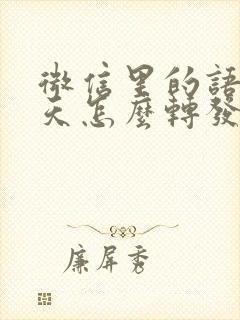 微信里的語
天怎麼轉發
廉屏秀